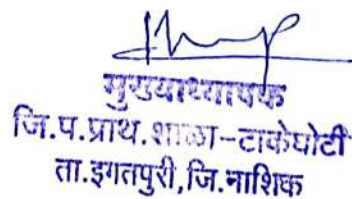 मुख्याध्यापक
जि.प.प्राथ.शाळा-टाकेघोटी
ता.इगतपुरी,जि.नाशिक